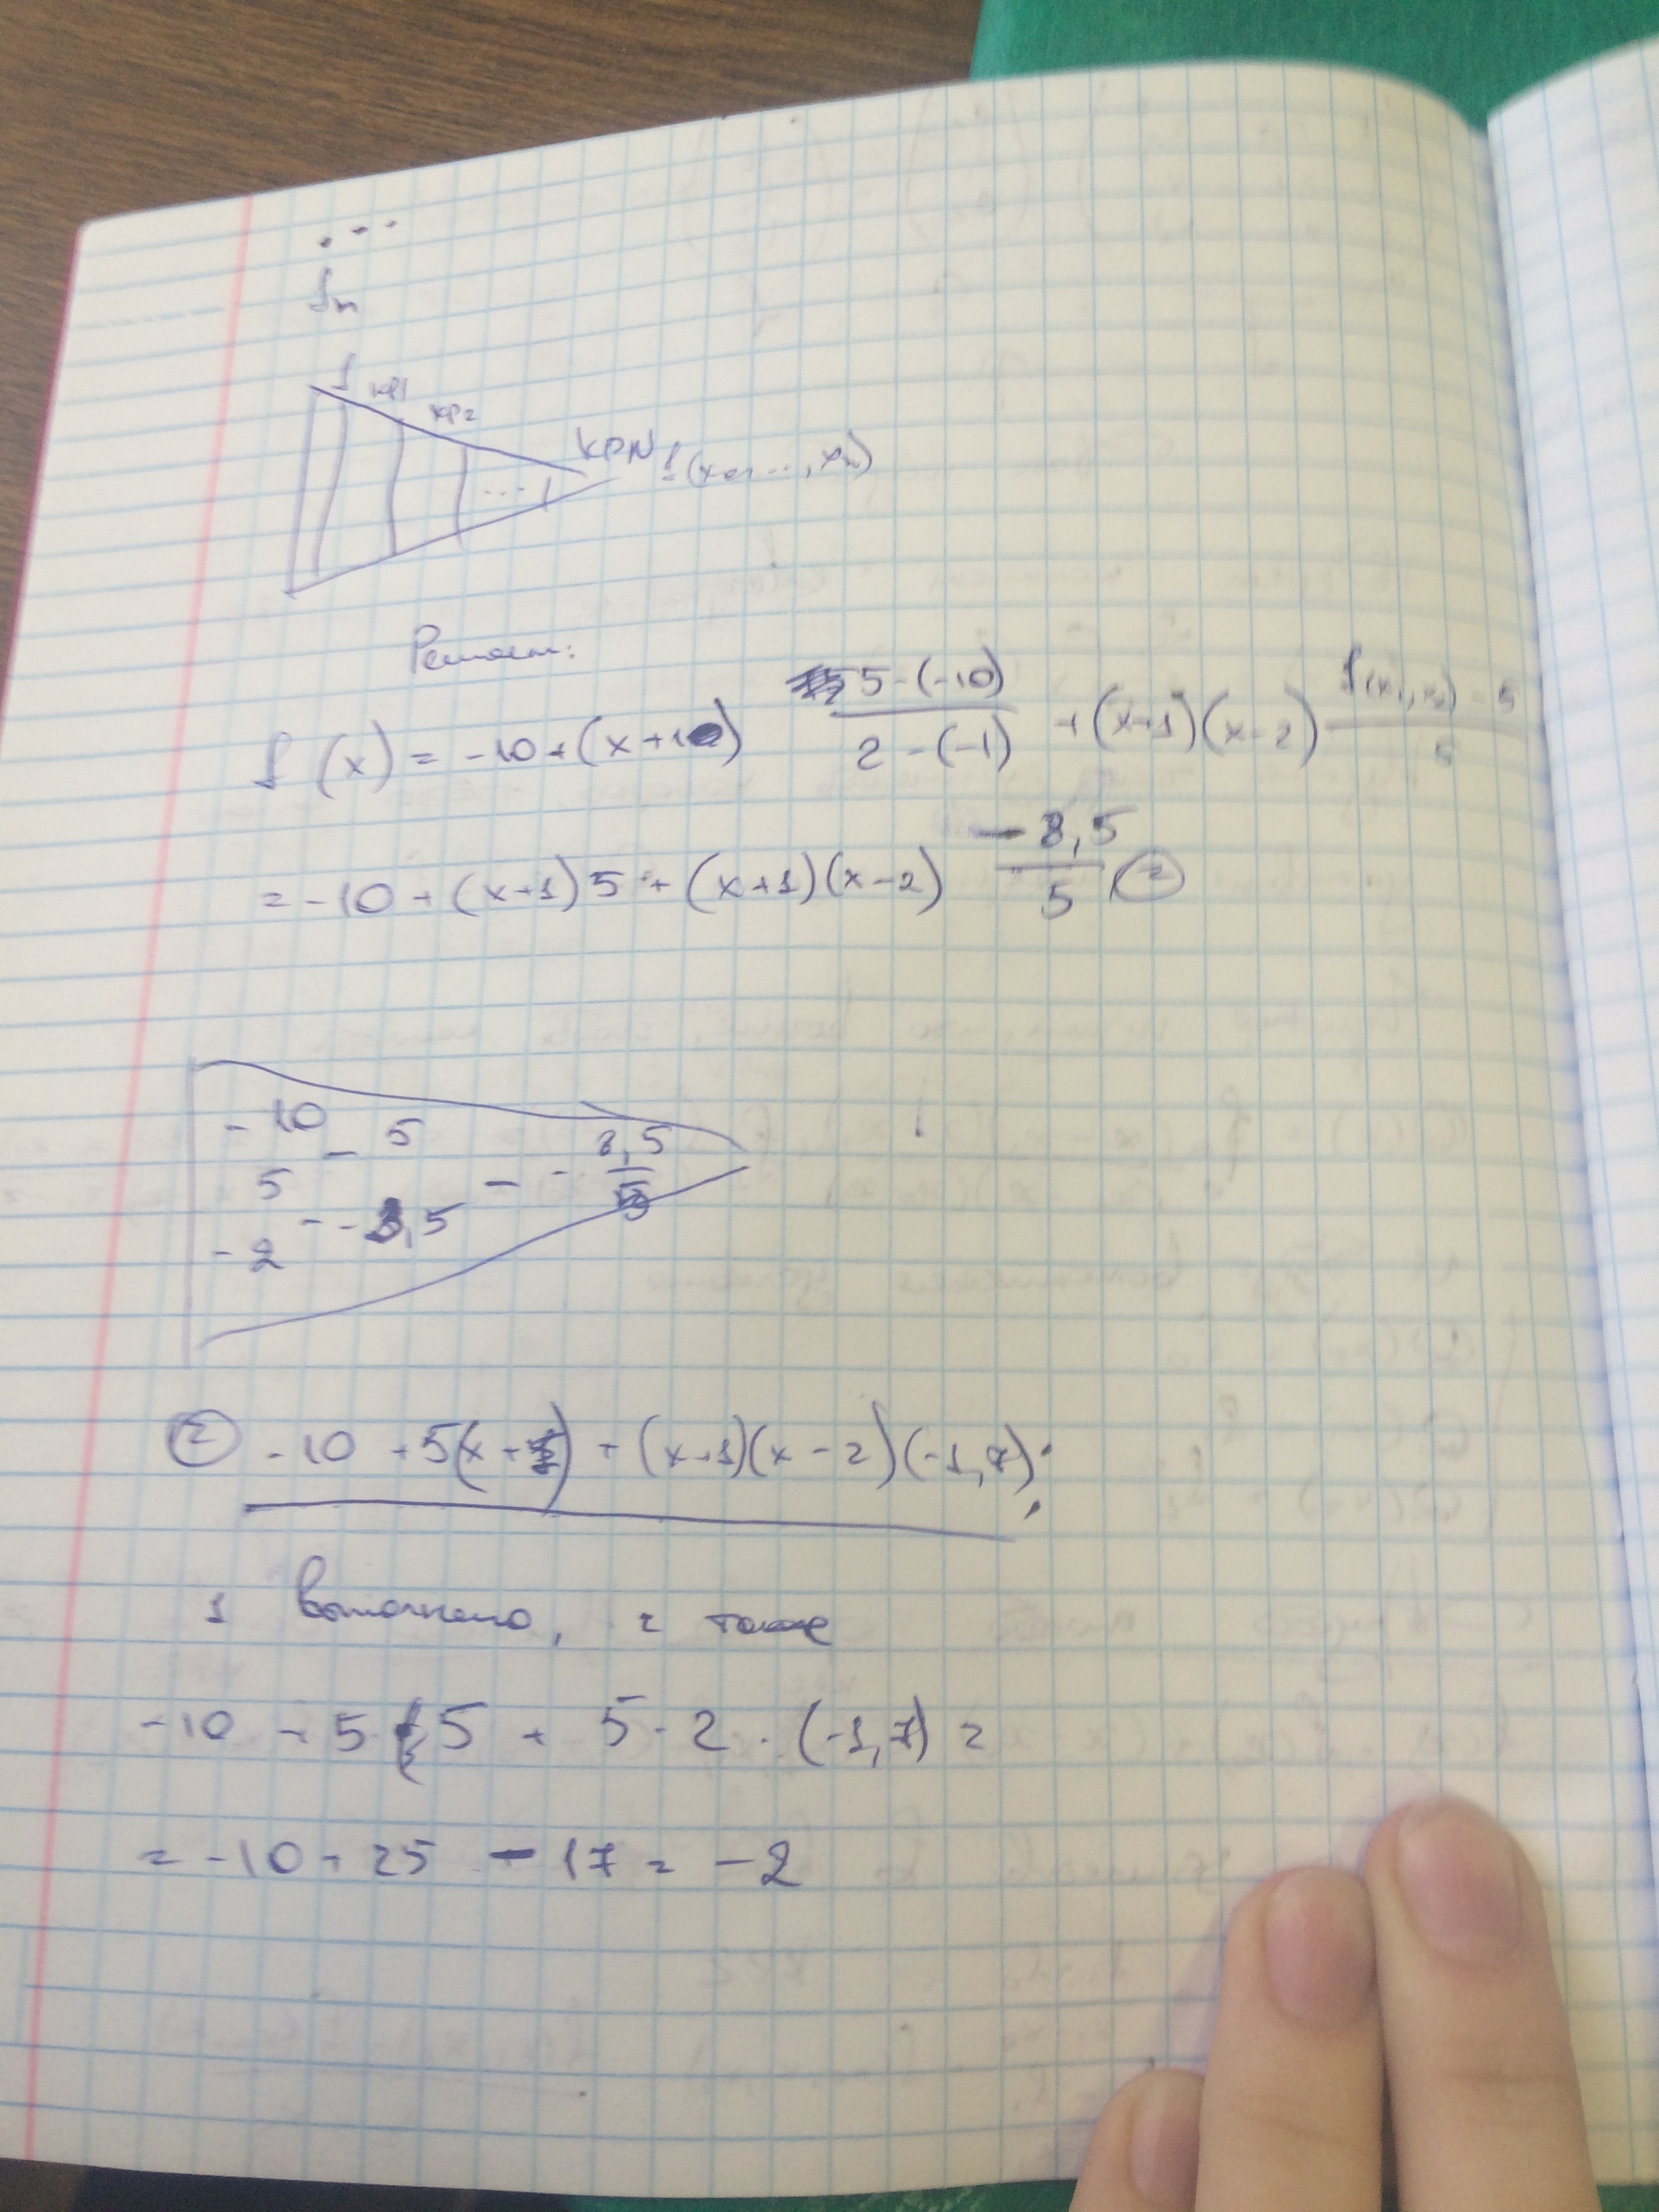 ...
fn
f кр1 кр2 КРN f(x0, ..., xn)
Решаем:
f(x) = -10 + (x+1) 5-(-10)/2-(-1) + (x+1)(x-2) f(x1,x2) - 5/5
= -10 + (x+1)5 + (x+1)(x-2) -8,5/5 (=)
-10 - 5
5 - - 8,5/5
-2 - -3,5
(=) -10 + 5(x+1) + (x+1)(x-2)(-1,7);
1 выполнено, 2 тоже
-10 + 5·5 + 5·2·(-1,7) =
= -10 + 25 - 17 = -2